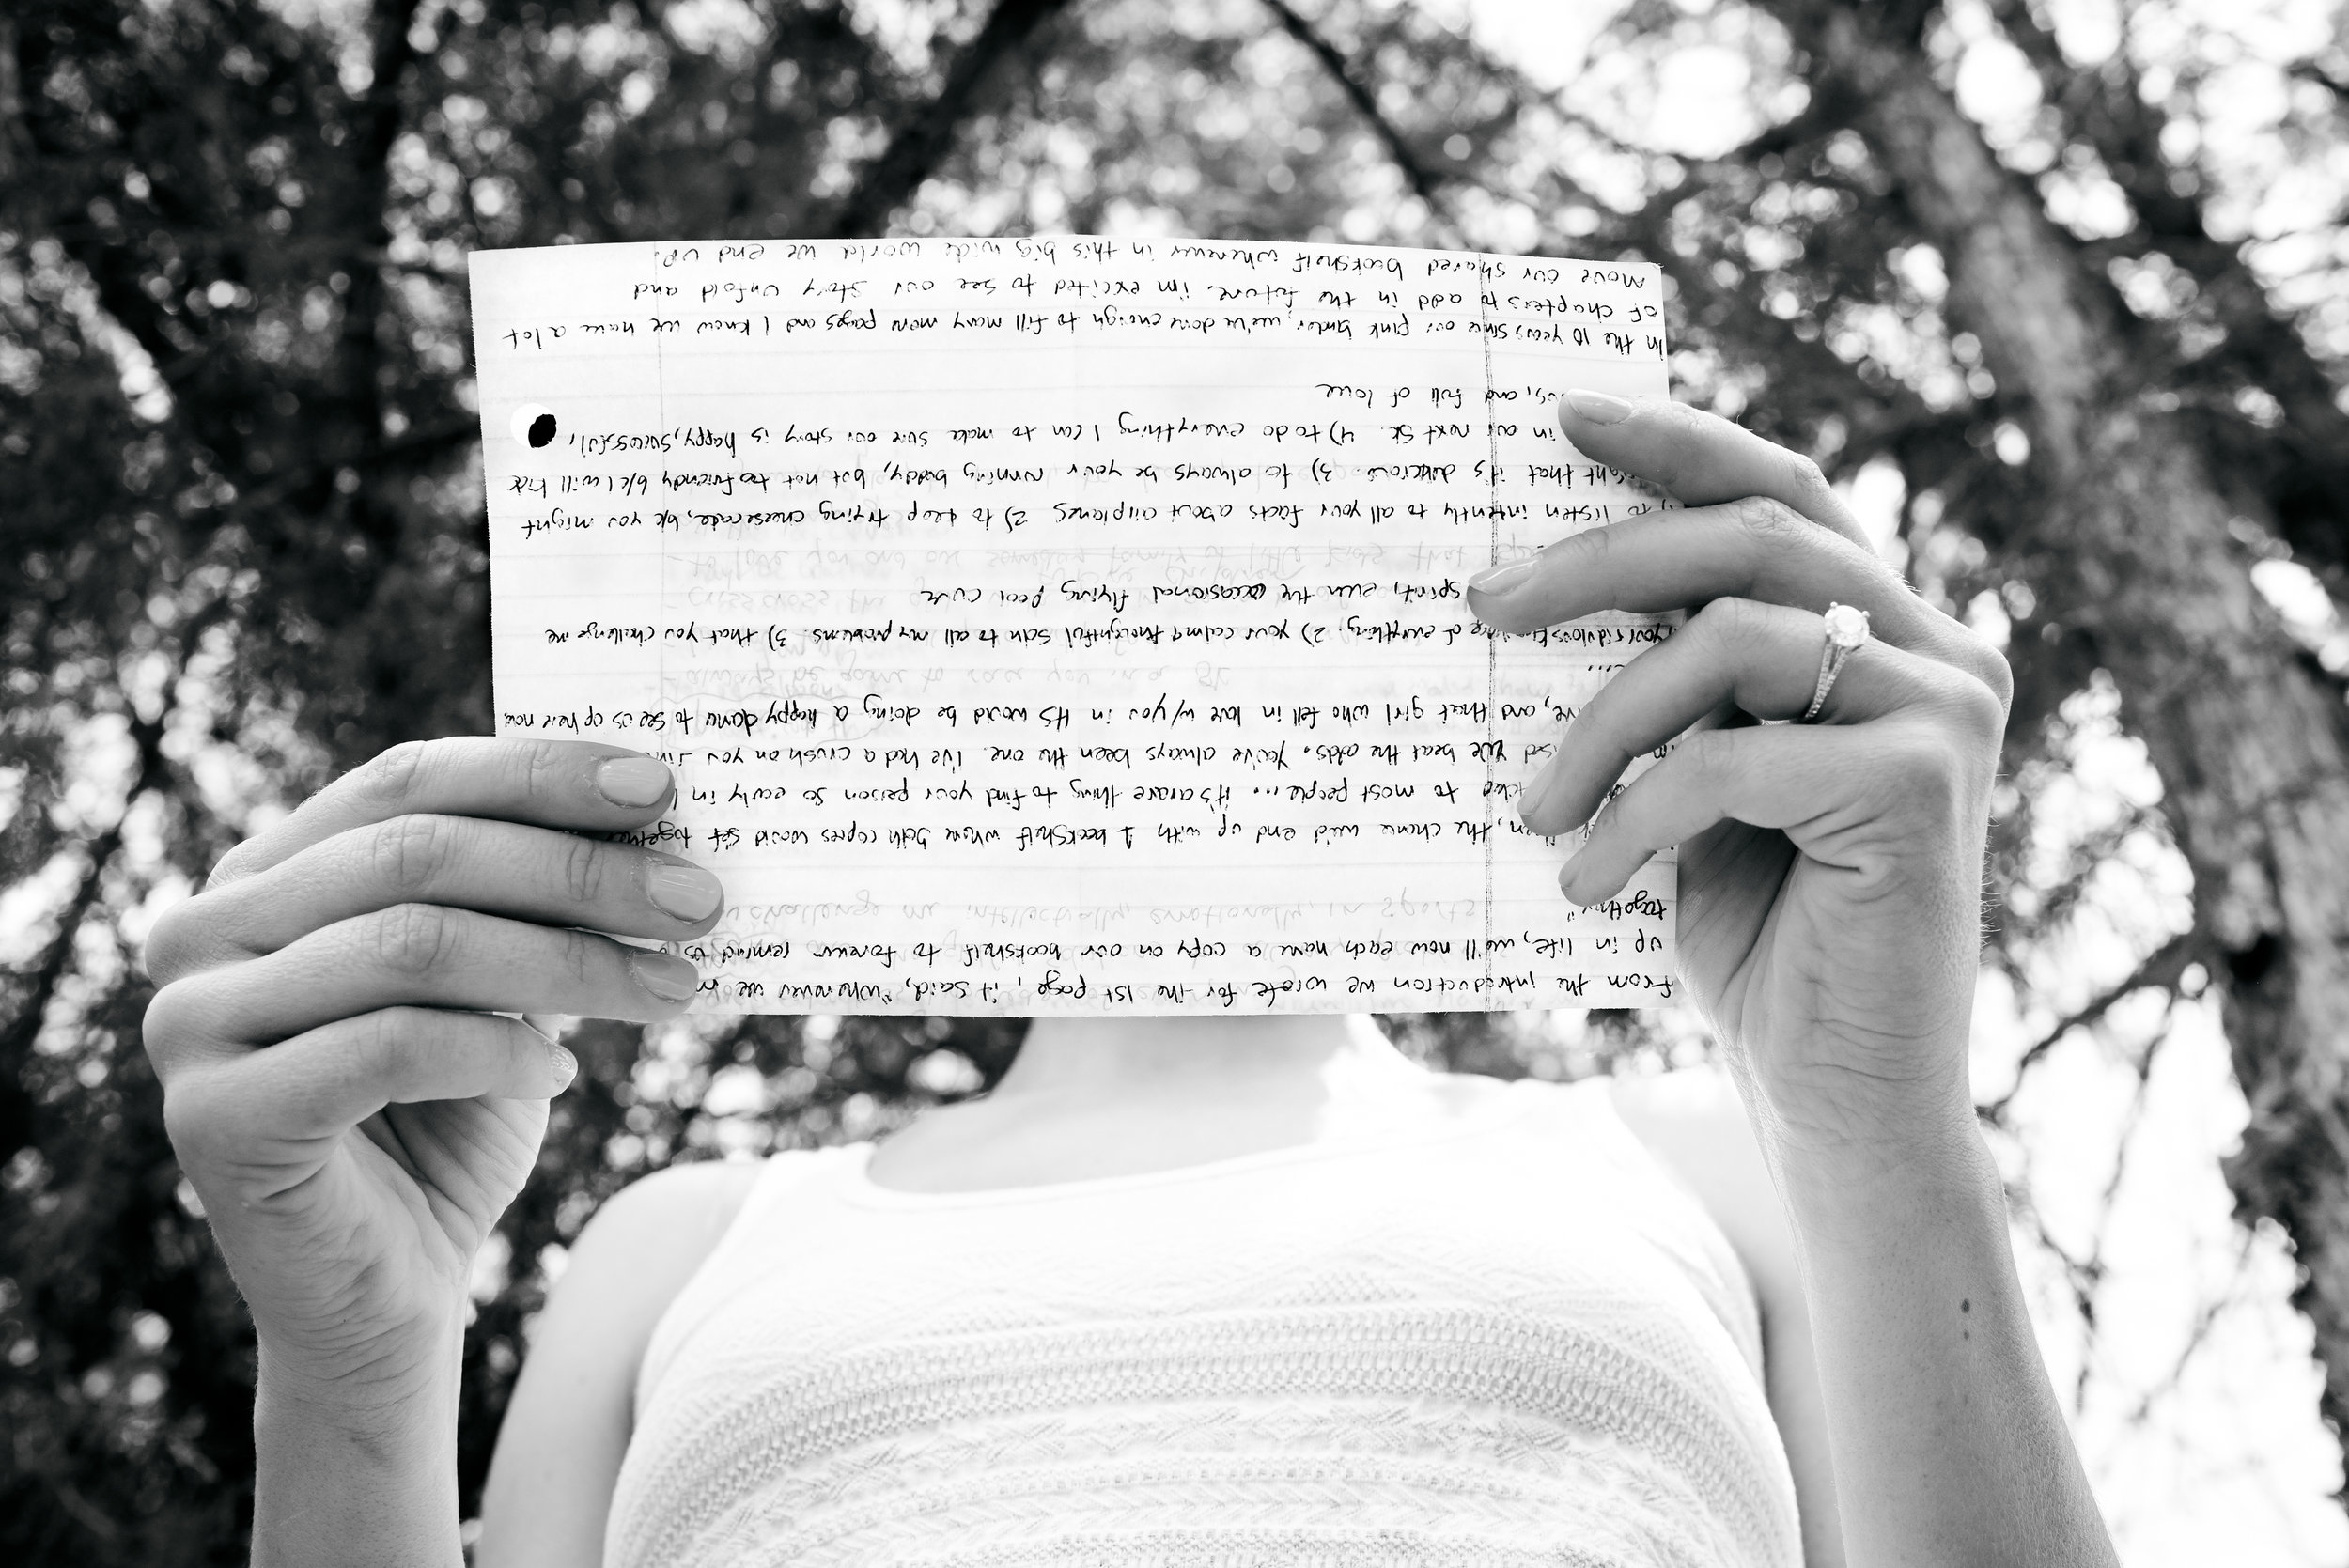 From the introduction we wrote for the 1st page, it said, "wherever we
up in life, we'll now each have a copy on our bookshelf to forever remind us
together"
then, the chance we'd end up with 1 bookshelf where both copies would sit together
to most people... it's a rare thing to find your person so early in
we beat the odds. You've always been the one. I've had a crush on you
and that girl who fell in love w/ you in HS would be doing a happy dance to see us up here now
...
your ridiculous knowledge of everything. 2) your calm & thoughtful soln to all my problems. 3) that you challenge me
spirit, even the occasional flying pool cue
to listen intently to all your facts about airplanes 2) to keep trying cheesecake, b/c you might
that it's delicious. 3) to always be your running buddy, but not too friendly b/c I will kick
in our next 5k. 4) to do everything I can to make sure our story is happy, successful,
and full of love
In the 10 years since our pink binder, we've done enough to fill many more pages and I know we have a lot
of chapters to add in the future. i'm excited to see our story unfold and
move our shared bookshelf wherever in this big wide world we end up.